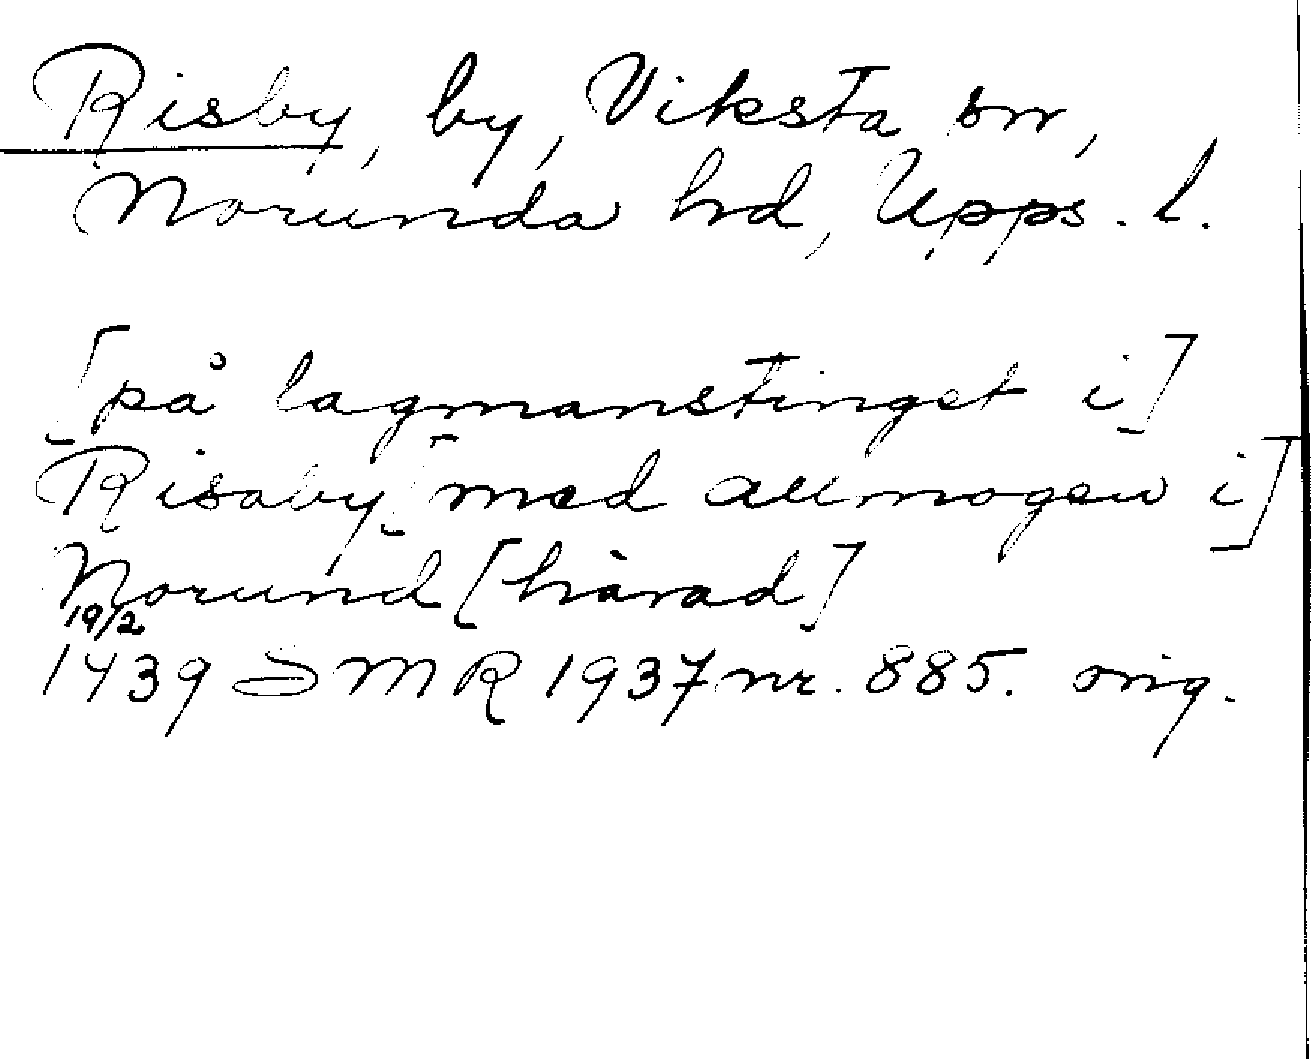 Risby, by, Viksta sn,
Norunda hd, Upps. l.
[på lagmanstinget i]
Risaby [med allmogen i]
Norund [härad]
19/2
1439 SMR 1937 nr. 885. orig.